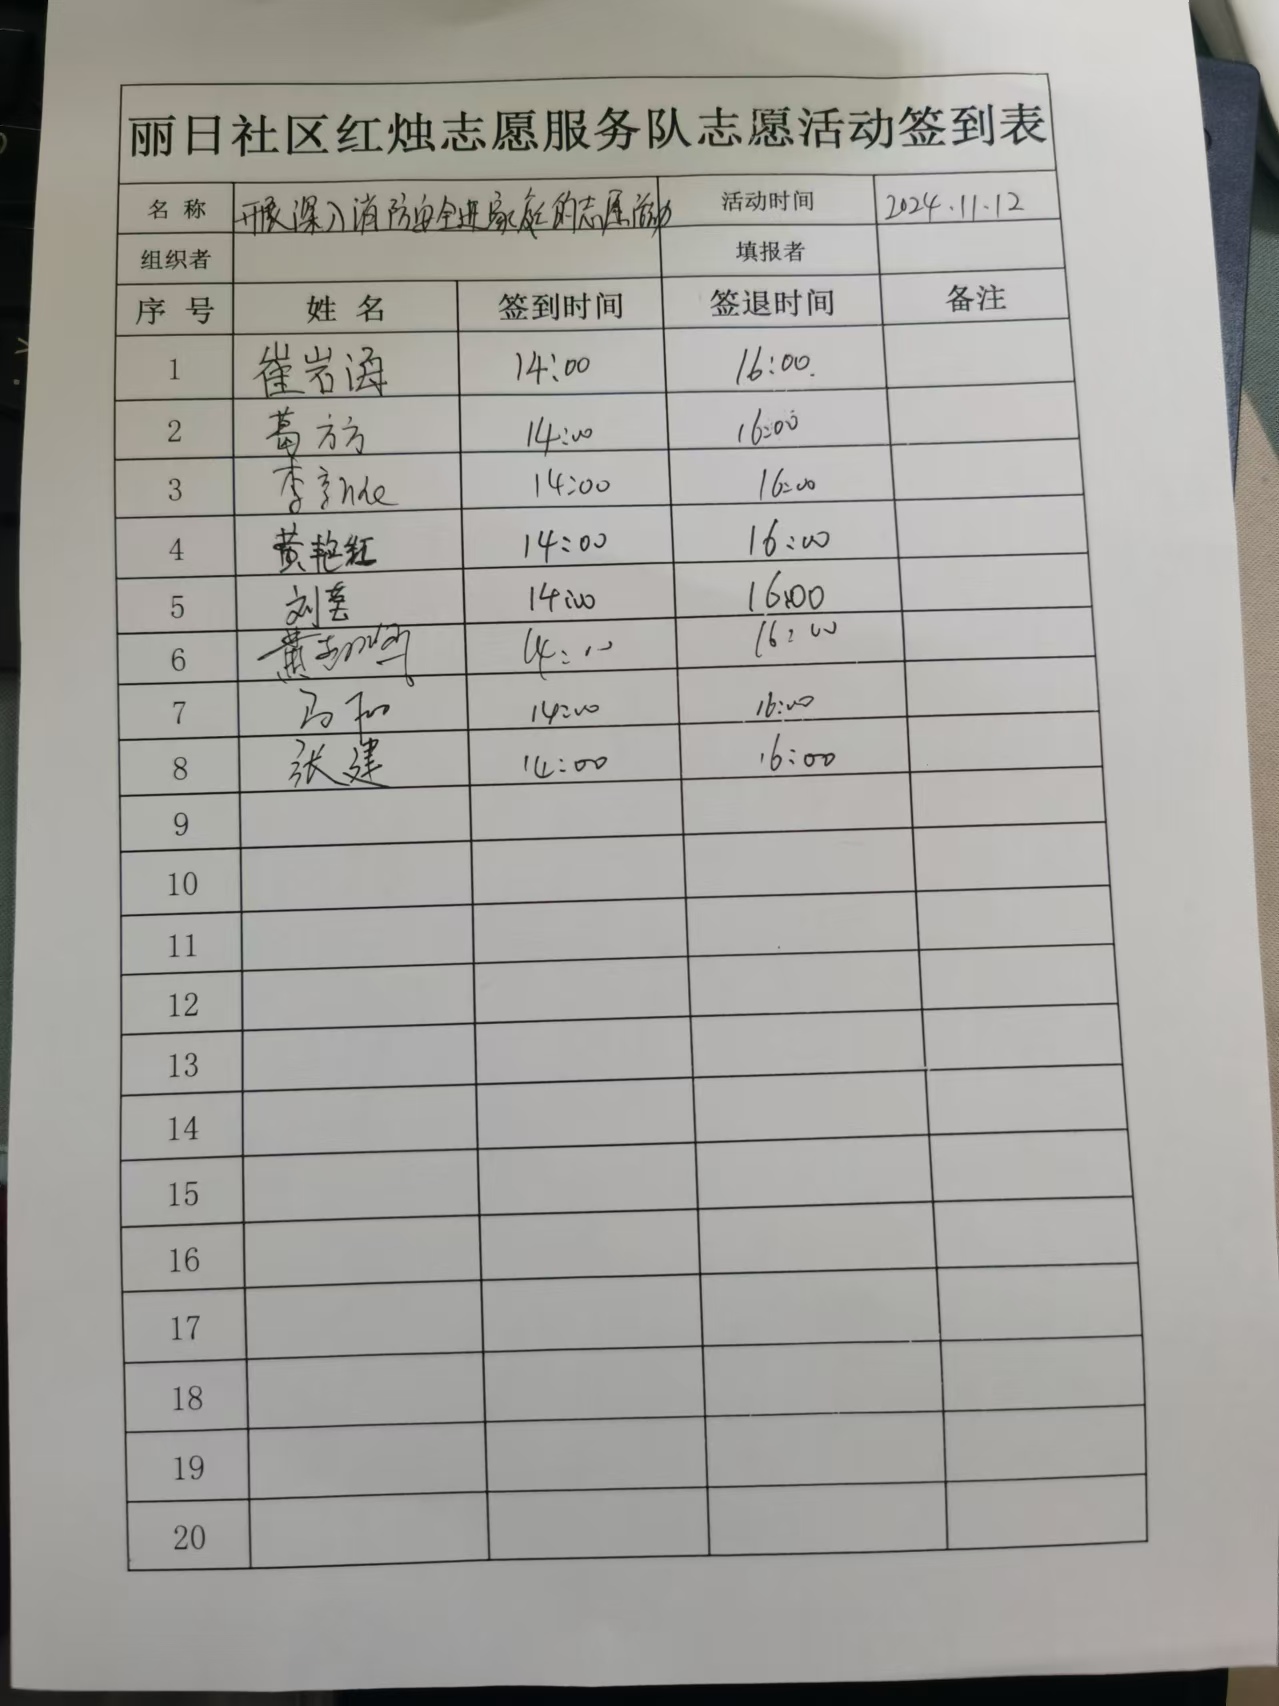 丽日社区红烛志愿服务队志愿活动签到表
名 称 开展深入消防安全进家庭的志愿活动 活动时间 2024.11.12
组织者 填报者
序 号 姓 名 签到时间 签退时间 备注
1 崔岩海 14:00 16:00
2 葛方方 14:00 16:00
3 李 14:00 16:00
4 黄艳红 14:00 16:00
5 刘 14:00 16:00
6 黄 14:00 16:00
7 马 14:00 16:00
8 张建 14:00 16:00
9
10
11
12
13
14
15
16
17
18
19
20